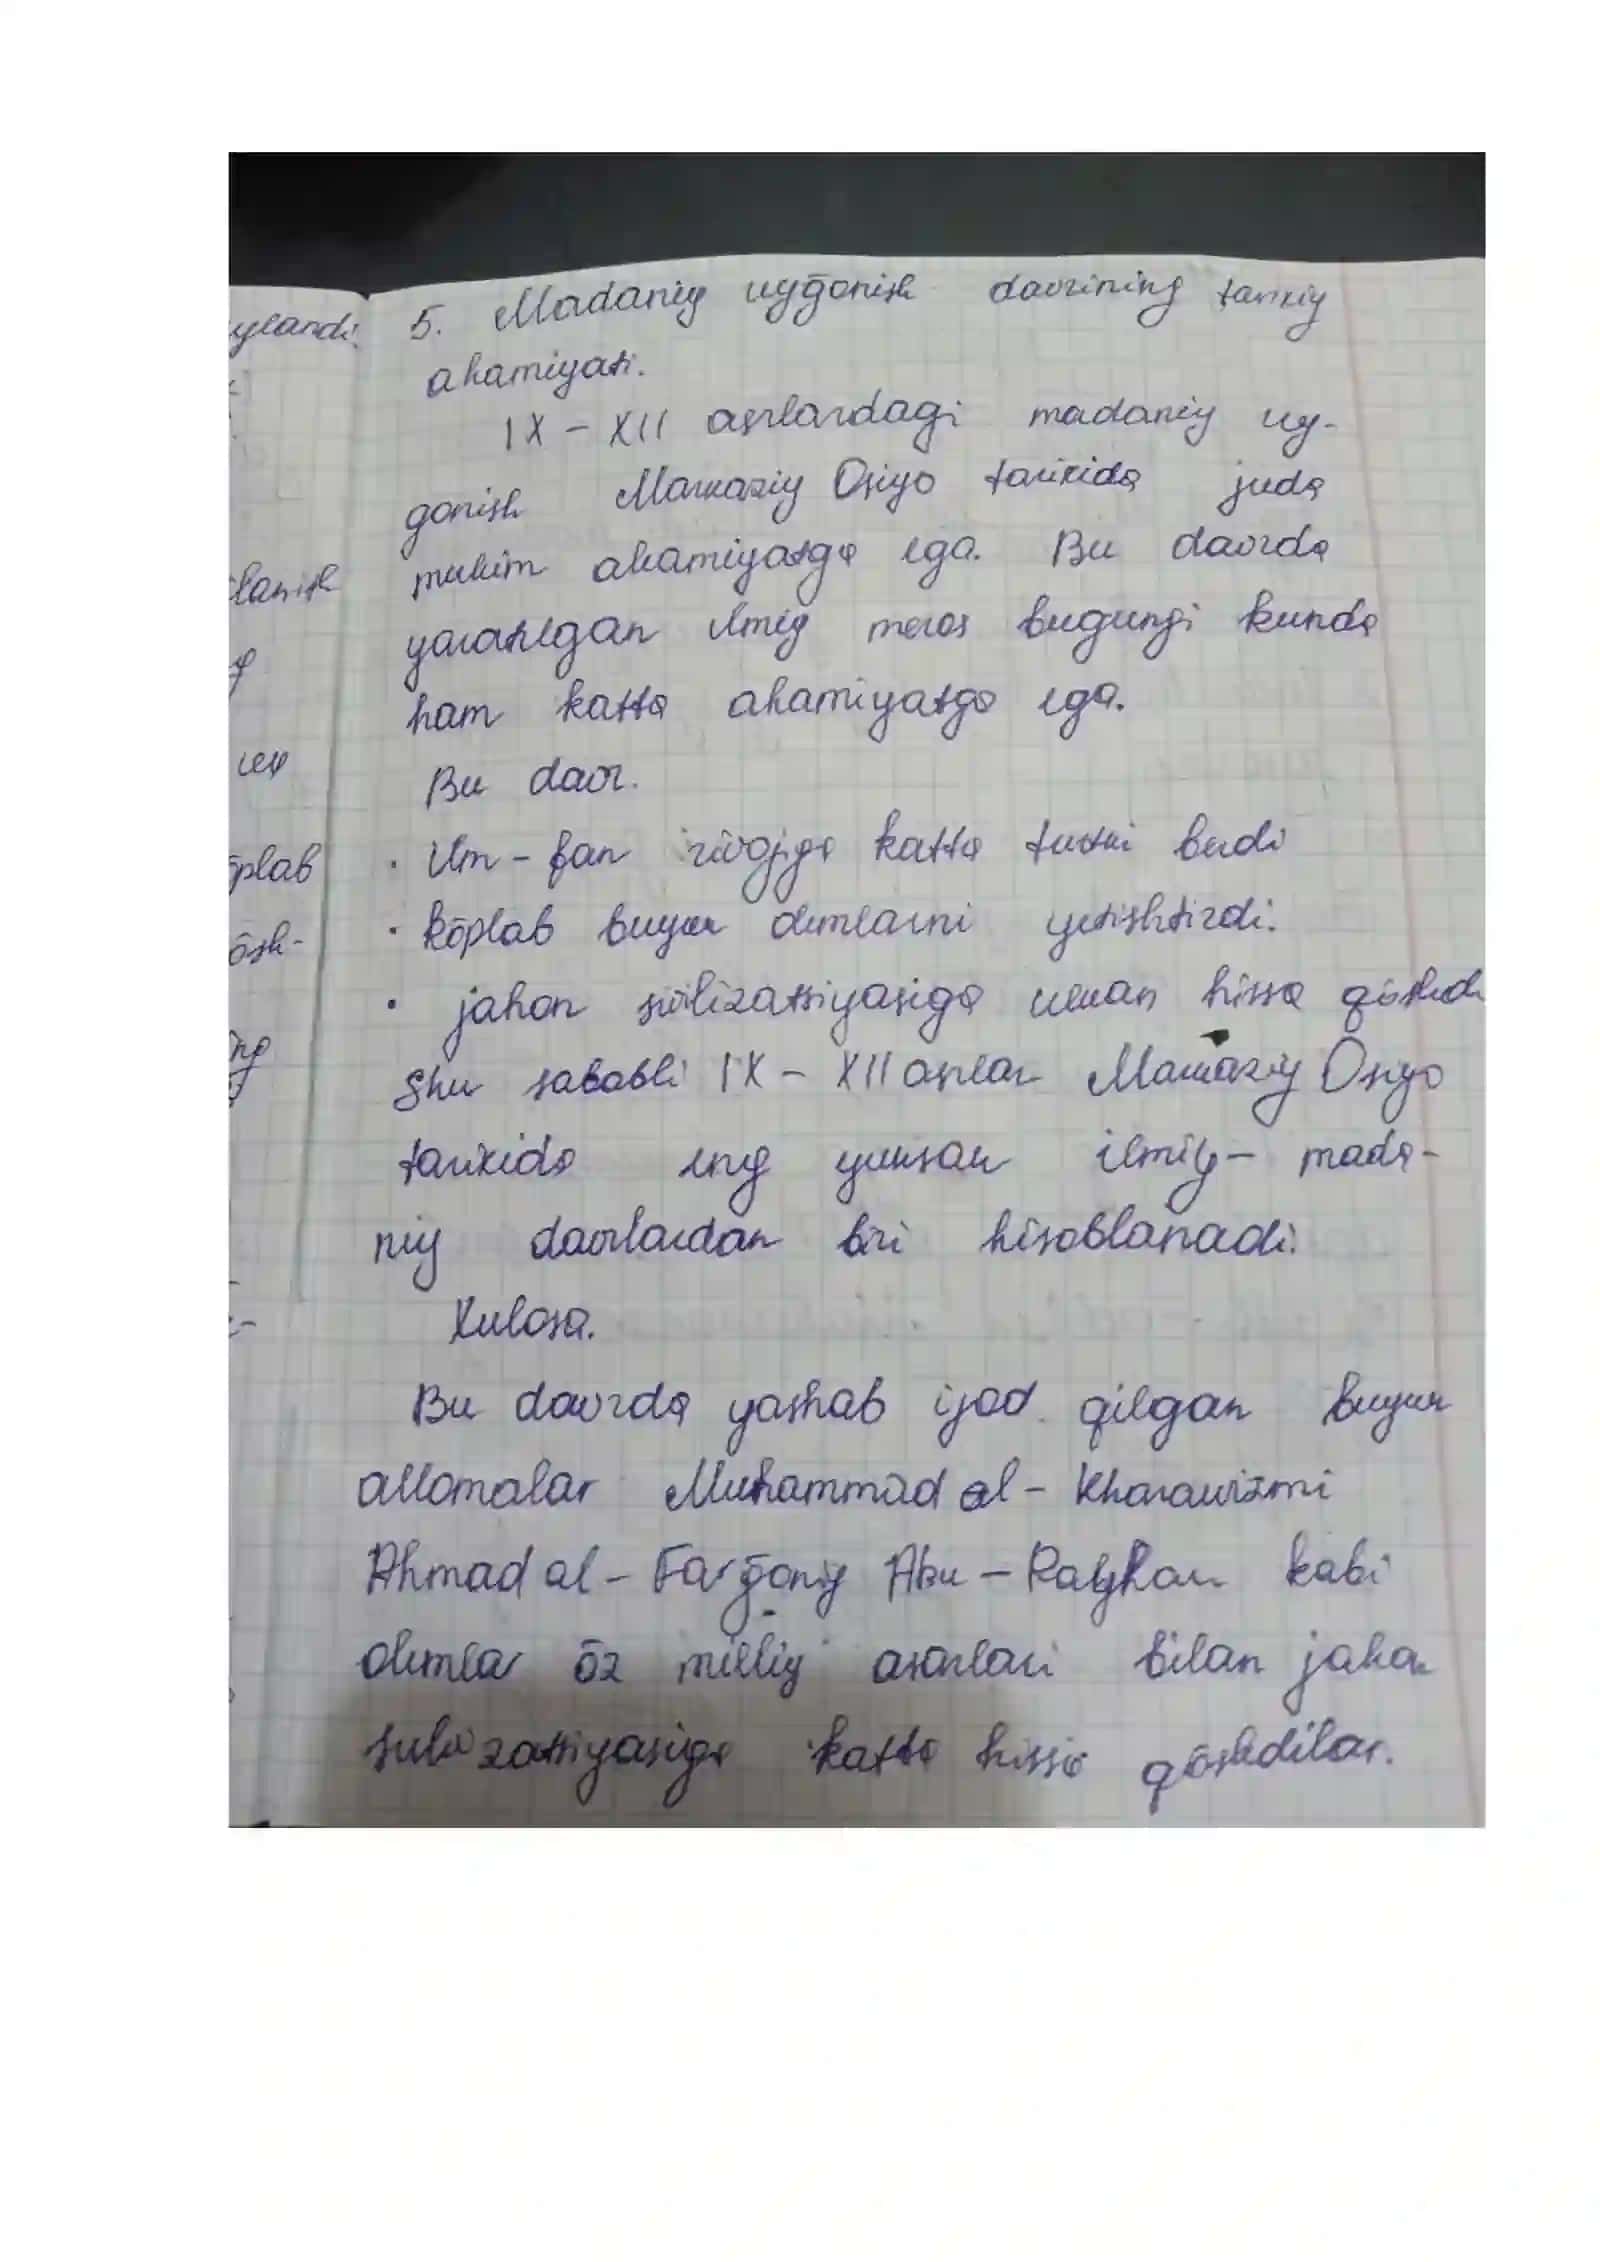 5. Madaniy uyḡonish davrining tarixiy
ahamiyati.
IX – XII asrlardagi madaniy uy-
gonish Markaziy Osiyo tarixida juda
muhim ahamiyatga ega. Bu davrda
yaratilgan ilmiy meros bugungi kunda
ham katta ahamiyatga ega.
Bu davr.
• Ilm – fan rivojiga katta turtki berdi
• kōplab buyuk olimlarni yetishtirdi.
• jahon sivilizatsiyasiga ulkan hissa qōshdi
Shu sababli IX – XII asrlar Markaziy Osiyo
tarixida eng yuksak ilmiy – mada-
niy davrlardan biri hisoblanadi.
Xulosa.
Bu davrda yashab ijod qilgan buyuk
allomalar Muhammad al – Kharawizmi
Ahmad al – Farḡoniy Abu – Rayhan kabi
olimlar ōz milliy asarlari bilan jahon
sulizatsiyasiga katta hissa qōshdilar.
ylandi.
lanish
ōplab
ōsh-
ing